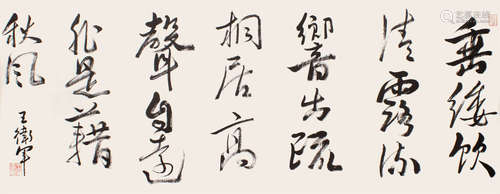 垂緌飲
清露流
響出疏
桐居高
聲自遠
非是藉
秋風
王衛軍